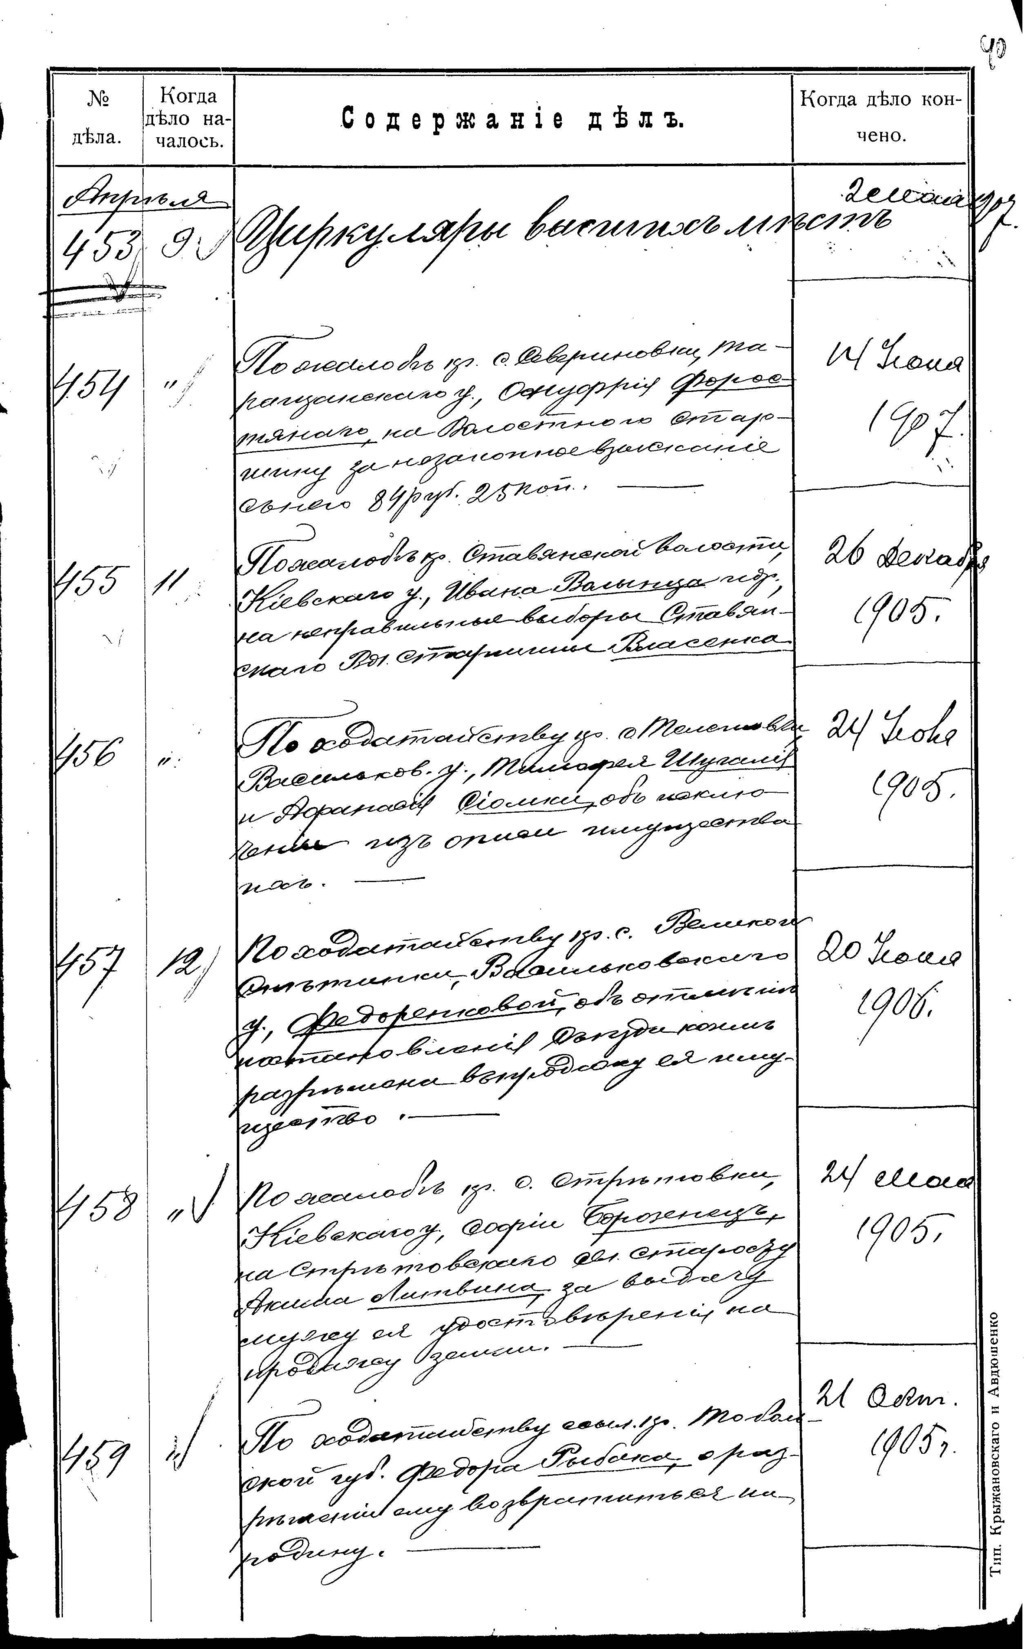 40
№ дѣла.
Когда дѣло началось.
Содержаніе дѣлъ.
Когда дѣло кончено.
Апрѣля
453 9 Циркуляры высшихъ мѣстъ 2 Мая 907.
454 " По жалобѣ кр. с. Севериновки, Та-
ращанскаго у., Онуфрія Форос-
тянаго, на Волостного Стар-
шину за незаконное взысканіе
съ него 84 руб. 25 коп.
14 Іюня
1907.
455 11 По жалобѣ кр. Ставянской волости,
Кіевскаго у., Ивана Волынца и др.,
на неправильные выборы Ставян-
скаго Вол. старшины Власенка
26 Декабря
1905.
456 " По ходатайству кр. с.
Васильков. у., Тимофея Шугалія
и Афанасія Сіомки, объ исклю-
ченіи изъ описи имущества
ихъ.
24 Іюня
1905.
457 12 По ходатайству кр. с. Великой
Снѣтинки, Васильковскаго
у., Федоренковой, объ отмѣнѣ
постановленія коимъ
разрѣшена въ продажу ея иму-
щество.
20 Іюня
1906.
458 " По жалобѣ кр. с. Стрѣтовки,
Кіевскаго у., Софіи Борозенецъ,
на Стрѣтовскаго с. старосту
Акима Литвина, за выдачу
мужу ея удостовѣренія на
продажу земли.
24 Мая
1905.
459 " По ходатайству ссыл. кр. Тоболь-
ской губ. Федора Рыбака, о раз-
рѣшеніи ему возвратиться на
родину.
21 Окт.
1905 г.
Тип. Крыжановскаго и Авдюшенко